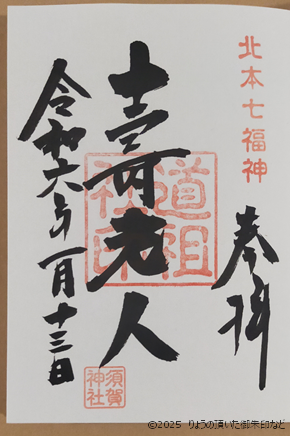 北本七福神
奉拝
壽老人
道祖神印
令和六年一月十三日
須賀神社
©2025 りょうの頂いた御朱印など